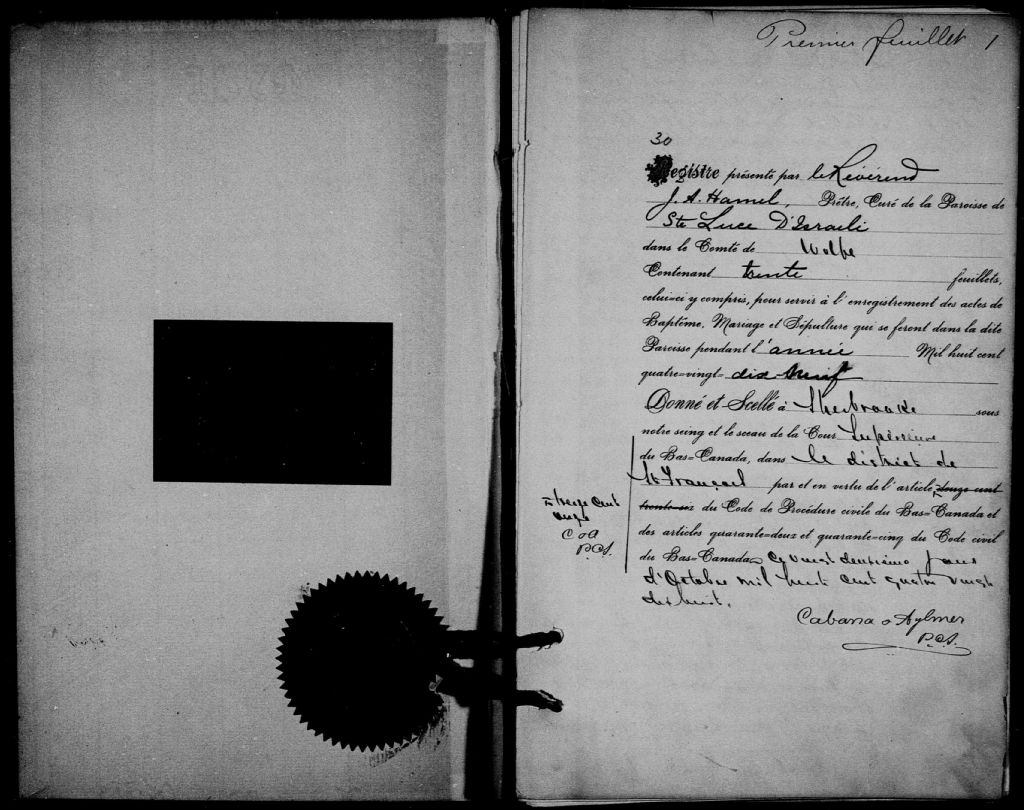 Premier feuillet 1
30
Registre présenté par le Révérend
J. A. Hamel, Prêtre, Curé de la Paroisse de
Ste Luce D'Israeli
dans le Comté de Wolfe
Contenant trente feuillets,
celui-ci y compris, pour servir à l'enregistrement des actes de
Baptême, Mariage et Sépulture qui se feront dans la dite
Paroisse pendant l'année Mil huit cent
quatre=vingt= dix-neuf
Donné et Scellé à Sherbrooke sous
notre seing et le sceau de la Cour Supérieure
du Bas=Canada, dans le district de
St François par et en vertu de l'article douze cent
trente-six du Code de Procédure civile du Bas=Canada et
treize cent
onze
C & A
P.C.S.
des articles quarante=deux et quarante=cinq du Code civil
du Bas=Canada, ce vingt deuxième jour
d'Octobre mil huit cent quatre vingt
dix huit.
Cabana & Aylmer
P.C.S.